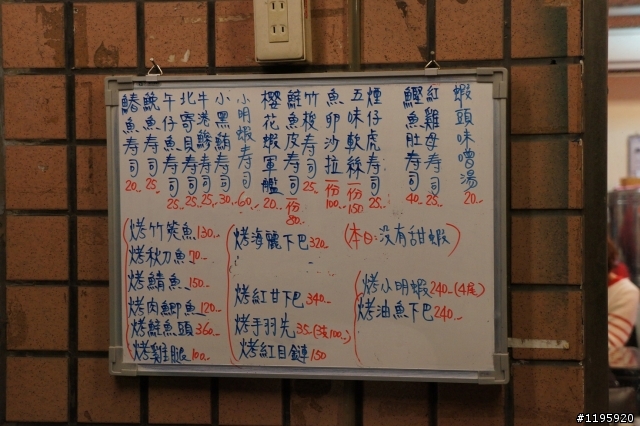 蝦頭味噌湯 20..
紅雞母壽司 25..
鰹魚肚壽司 40..
煙仔虎壽司 25..
五味軟絲 一份 150
魚卵沙拉 一份 100..
竹梭壽司 25..
鮭魚皮壽司 一份 80..
櫻花蝦軍艦 20..
小明蝦壽司 60..
小黑鮪壽司 30..
牛港鰺壽司 25..
北寄貝壽司 25..
午仔魚壽司 25..
魚壽司 25..
鰆魚壽司 20..
烤竹筴魚 130..
烤秋刀魚 70..
烤鯖魚 150..
烤肉鯽魚 120..
烤鮭魚頭 360..
烤雞腿 100..
烤海麗下巴 320..
烤紅甘下巴 340..
烤手羽先 35..(3支100..)
烤紅目鰱 150
(本日:没有甜蝦)
烤小明蝦 240..(4尾)
烤油魚下巴 240..
#1195920